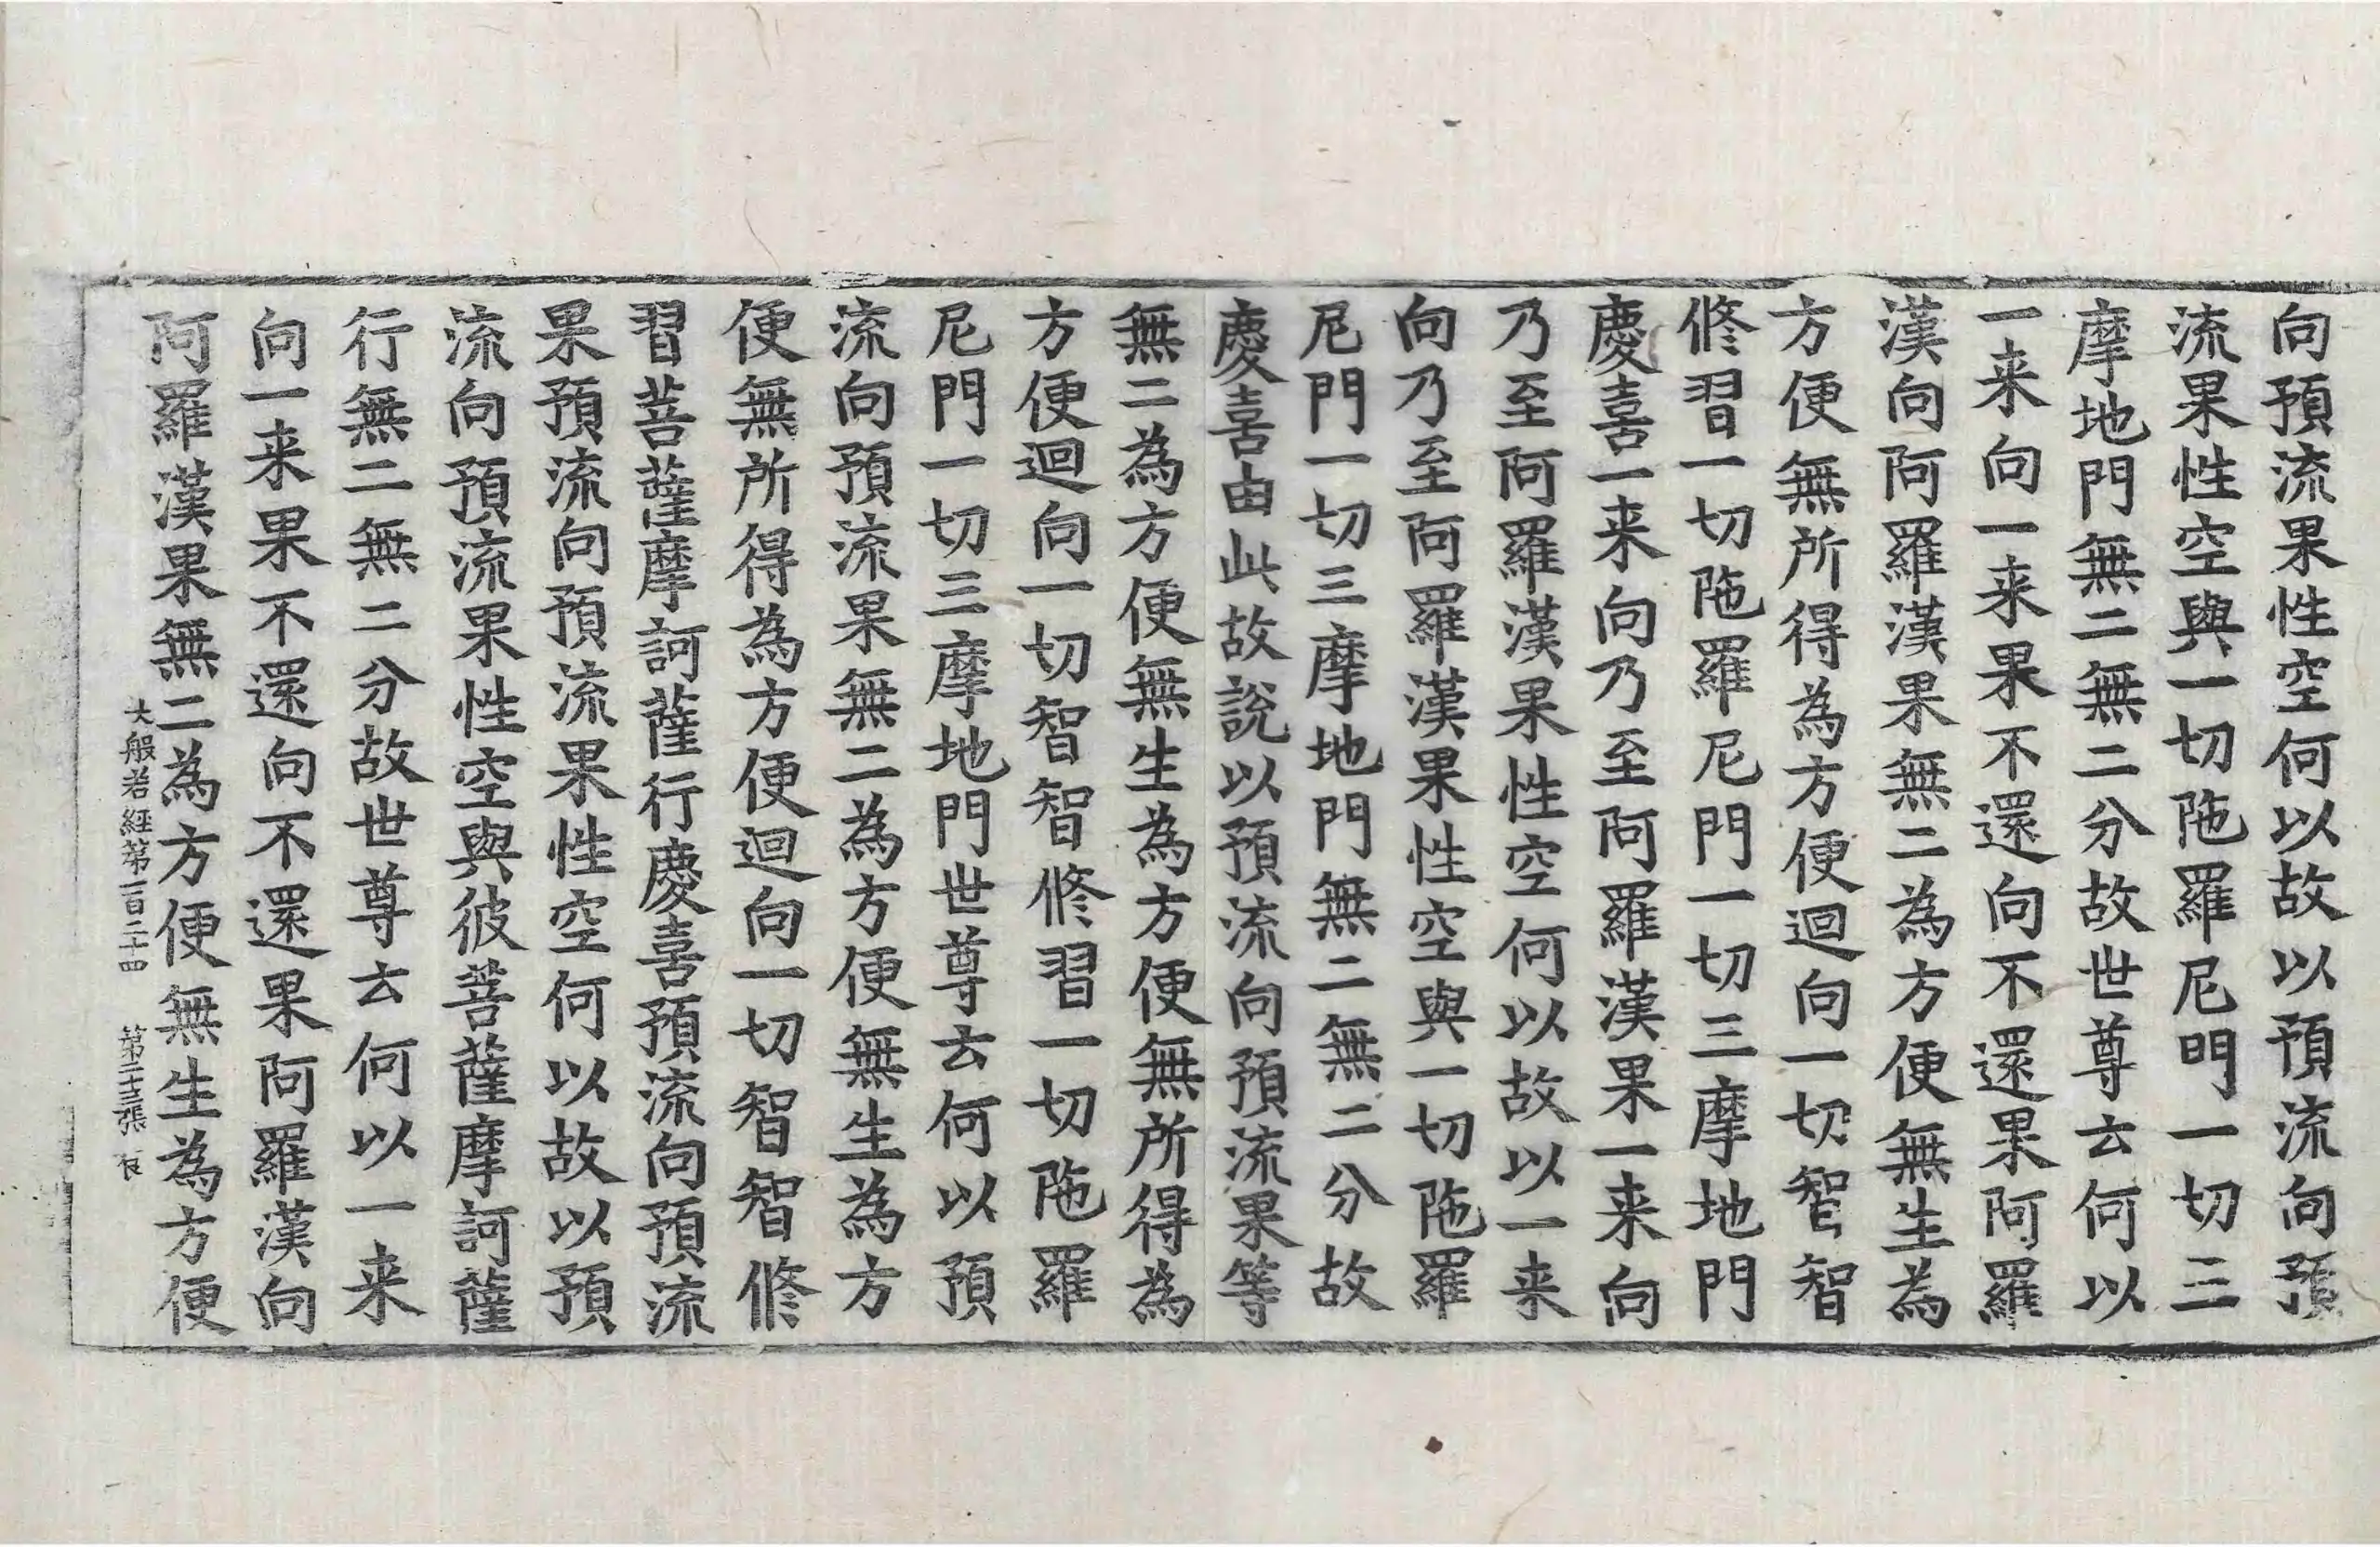 向預流果性空何以故以預流向預
流果性空與一切陁羅尼門一切三
摩地門無二無二分故世尊云何以
一来向一来果不還向不還果阿羅
漢向阿羅漢果無二為方便無生為
方便無所得為方便迴向一切智智
修習一切陁羅尼門一切三摩地門
慶喜一来向乃至阿羅漢果一来向
乃至阿羅漢果性空何以故以一来
向乃至阿羅漢果性空與一切陁羅
尼門一切三摩地門無二無二分故
慶喜由此故說以預流向預流果等
無二為方便無生為方便無所得為
方便迴向一切智智修習一切陁羅
尼門一切三摩地門世尊云何以預
流向預流果無二為方便無生為方
便無所得為方便迴向一切智智修
習菩薩摩訶薩行慶喜預流向預流
果預流向預流果性空何以故以預
流向預流果性空與彼菩薩摩訶薩
行無二無二分故世尊云何以一来
向一来果不還向不還果阿羅漢向
阿羅漢果無二為方便無生為方便
大般若經第一百二十四 第二十三張